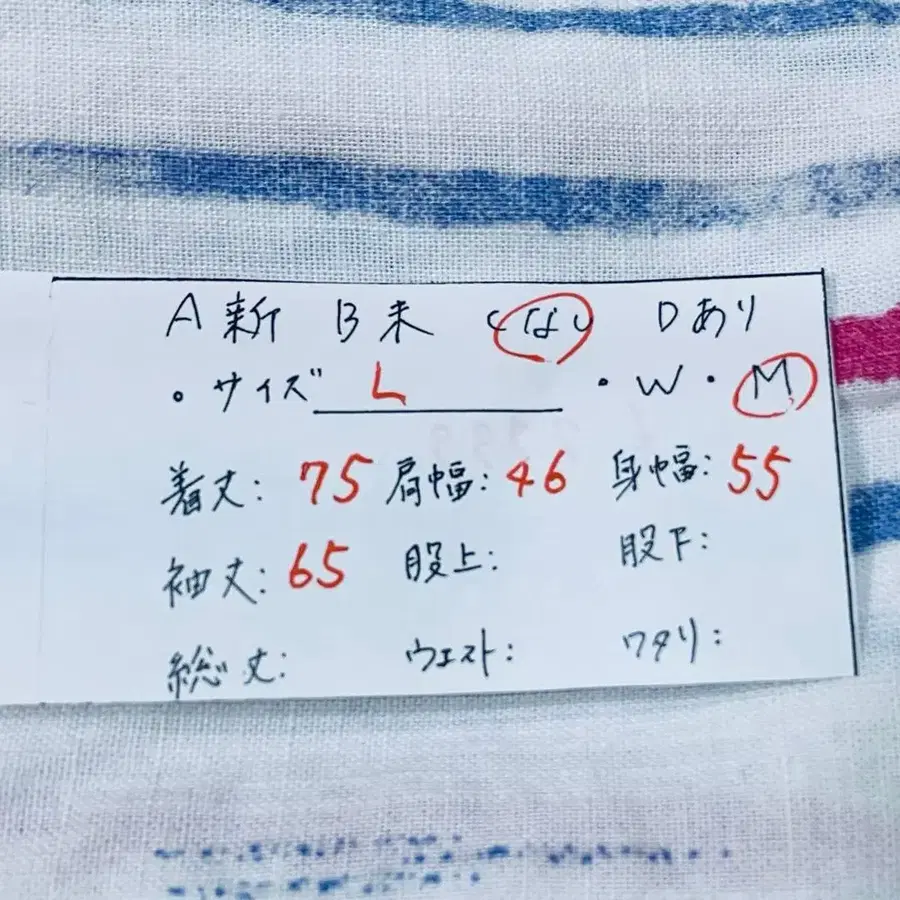 A 新 B 未 C なし D あり
・サイズ L ・W・M
着丈: 75 肩幅: 46 身幅: 55
袖丈: 65 股上: 股下:
総丈: ウエスト: ワタリ: